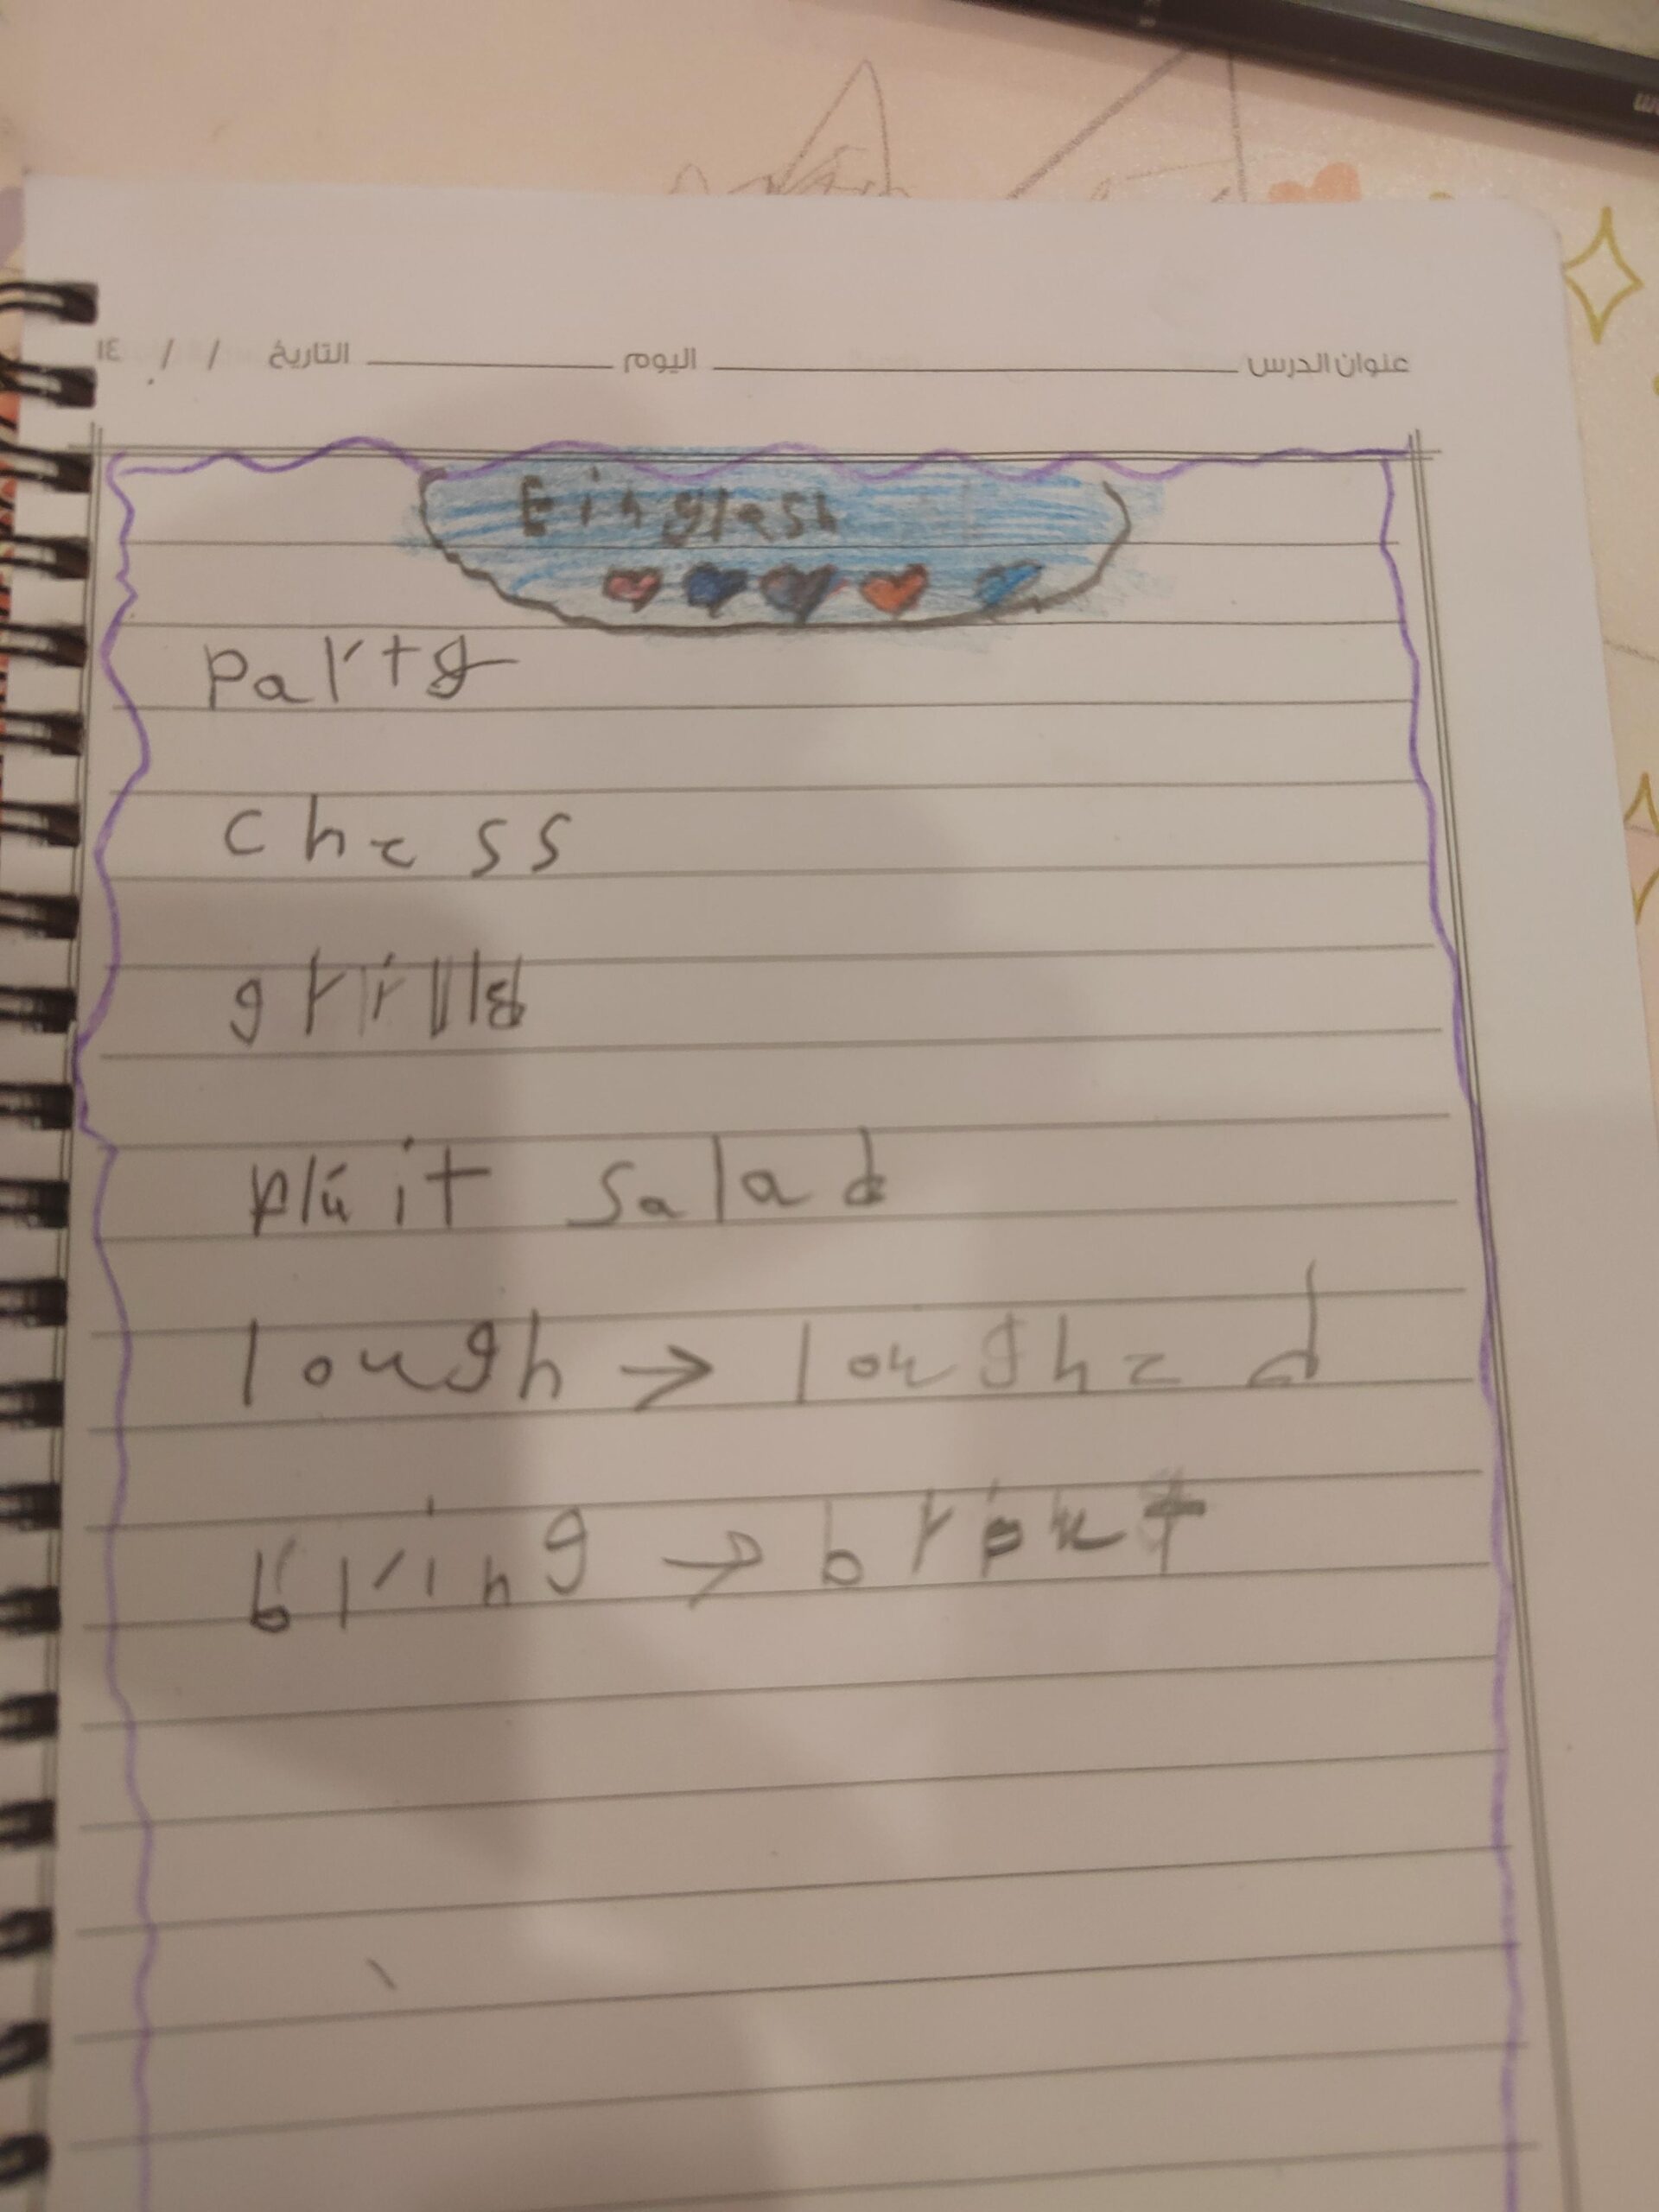 عنوان الدرس اليوم التاريخ / / ١٤
Einglash
party
chess
grilld
fluit salad
lough → loughed
bring →